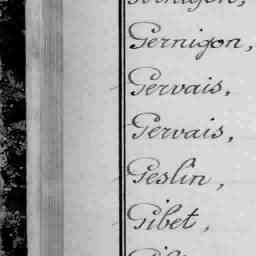 Gernigon,
Gervais,
Gervais,
Geslin,
Gibet,